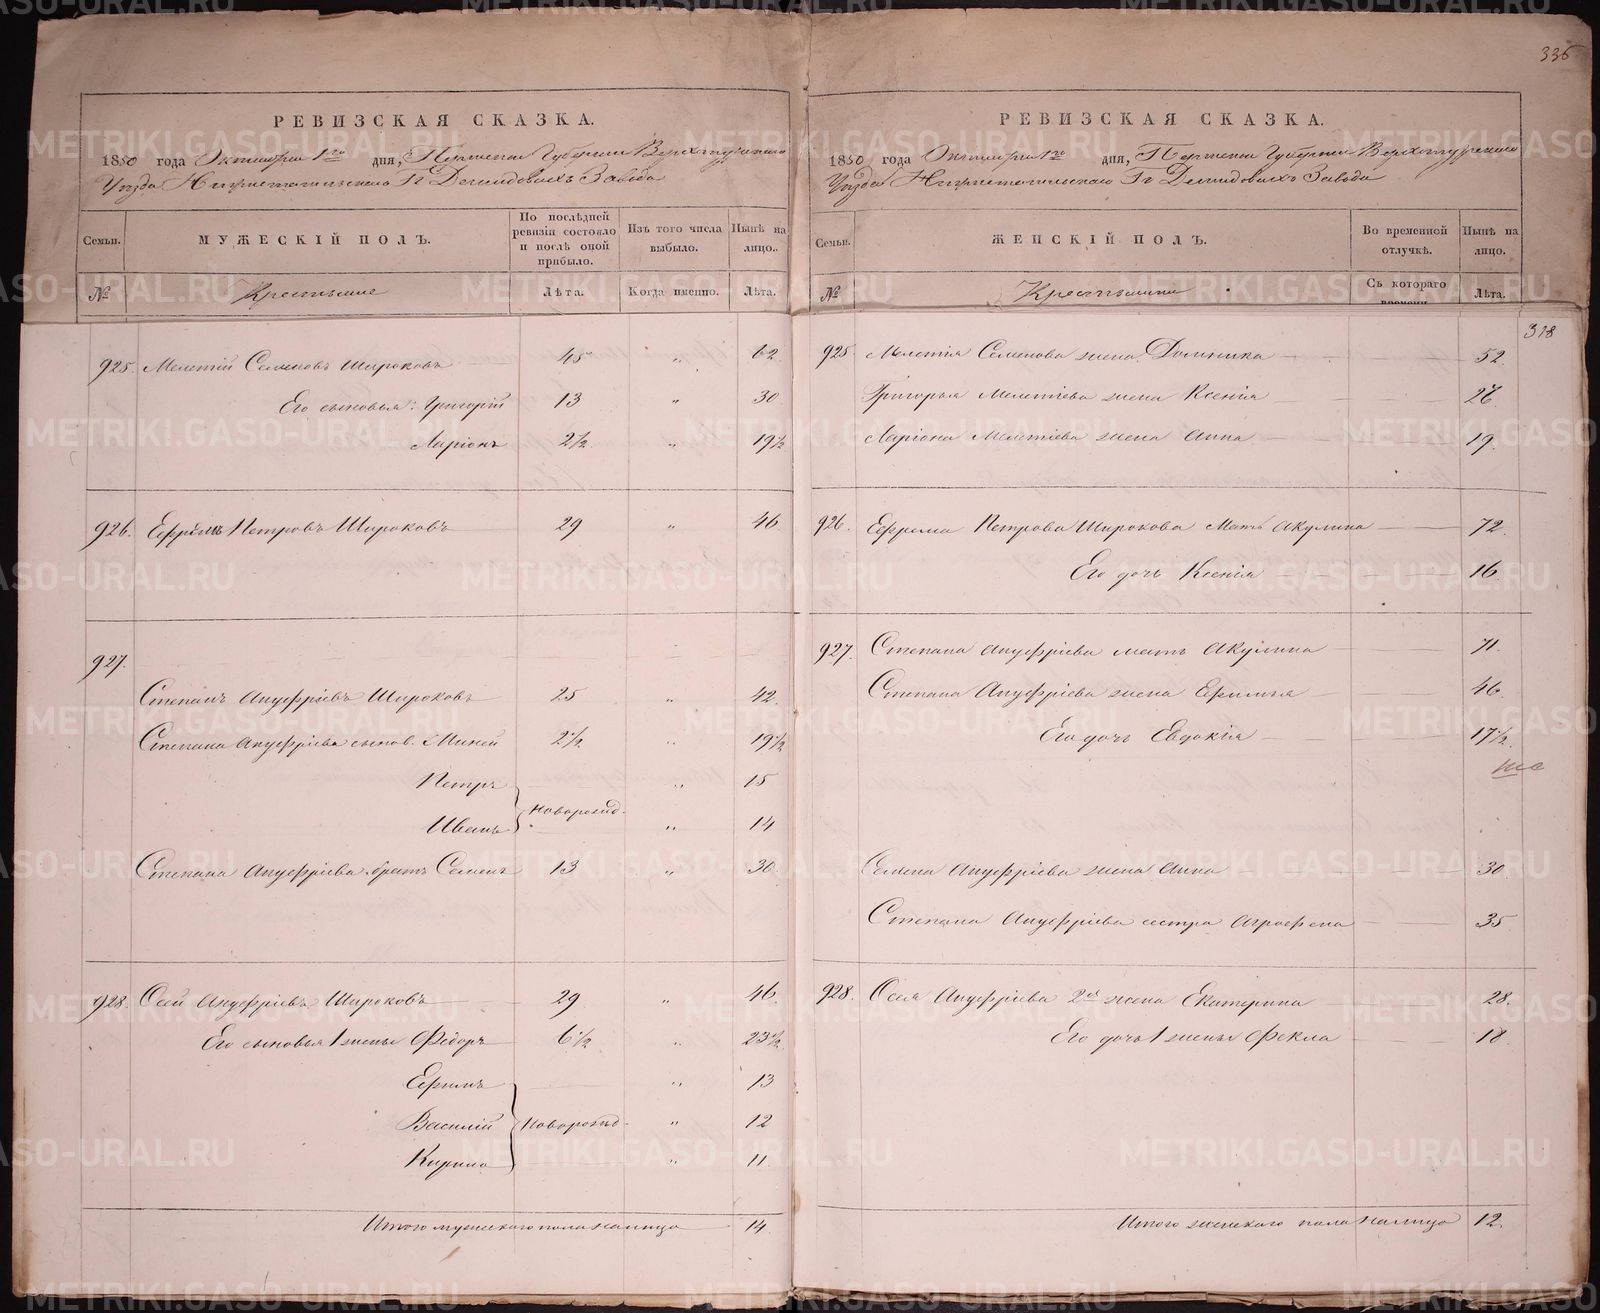 336
РЕВИЗСКАЯ СКАЗКА.
1850 года Октября 1го дня, Пермской Губернии Верхотурскаго
Уезда Нижнетагильскаго Гг Демидовыхъ Завода
Семьи.
МУЖЕСКІЙ ПОЛЪ.
По послѣдней ревизіи состояло и послѣ оной прибыло.
Изъ того числа выбыло.
Нынѣ на лицо.
№
Крестьяне
Лѣта.
Когда именно.
Лѣта.
925. Мелетій Семеновъ Широковъ 45 „ 62
Его сыновья: Григорій 13 „ 30
Ларіонъ 2½ „ 19½
926. Ефремъ Петровъ Широковъ 29 „ 46
927.
Степанъ Ануфріевъ Широковъ 25 „ 42
Степана Ануфріева сынов. Миней 2½ „ 19½
Петръ „ 15
Новорожд.
Иванъ „ 14
Степана Ануфріева братъ Семенъ 13 „ 30
928. Осей Ануфріевъ Широковъ 29 „ 46
Его сыновья 1 жены Федоръ 6½ „ 23½
Ефимъ „ 13
Василій Новорожд. „ 12
Кирило „ 11
Итого мужескаго пола налицо 14
РЕВИЗСКАЯ СКАЗКА.
1850 года Октября 1го дня, Пермской Губернии Верхотурскаго
Уезда Нижнетагильскаго Гг Демидовыхъ Завода
Семьи.
ЖЕНСКІЙ ПОЛЪ.
Во временной отлучкѣ.
Нынѣ на лицо.
№
Крестьянки
Съ котораго времени.
Лѣта.
318
925. Мелетія Семенова жена Домника 52
Григорья Мелетіева жена Ксенія 26
Ларіона Мелетіева жена Анна 19
926. Ефрема Петрова Широкова Мать Акулина 72
Его дочь Ксенія 16
927. Степана Ануфріева мать Акулина 71
Степана Ануфріева жена Ефимья 46
Его дочь Евдокія 17½
Семена Ануфріева жена Анна 30
Степана Ануфріева сестра Аграфена 35
928. Осея Ануфріева 2я жена Екатерина 28
Его дочь 1 жены Фекла 18
Итого женскаго пола налицо 12
METRIKI.GASO-URAL.RU